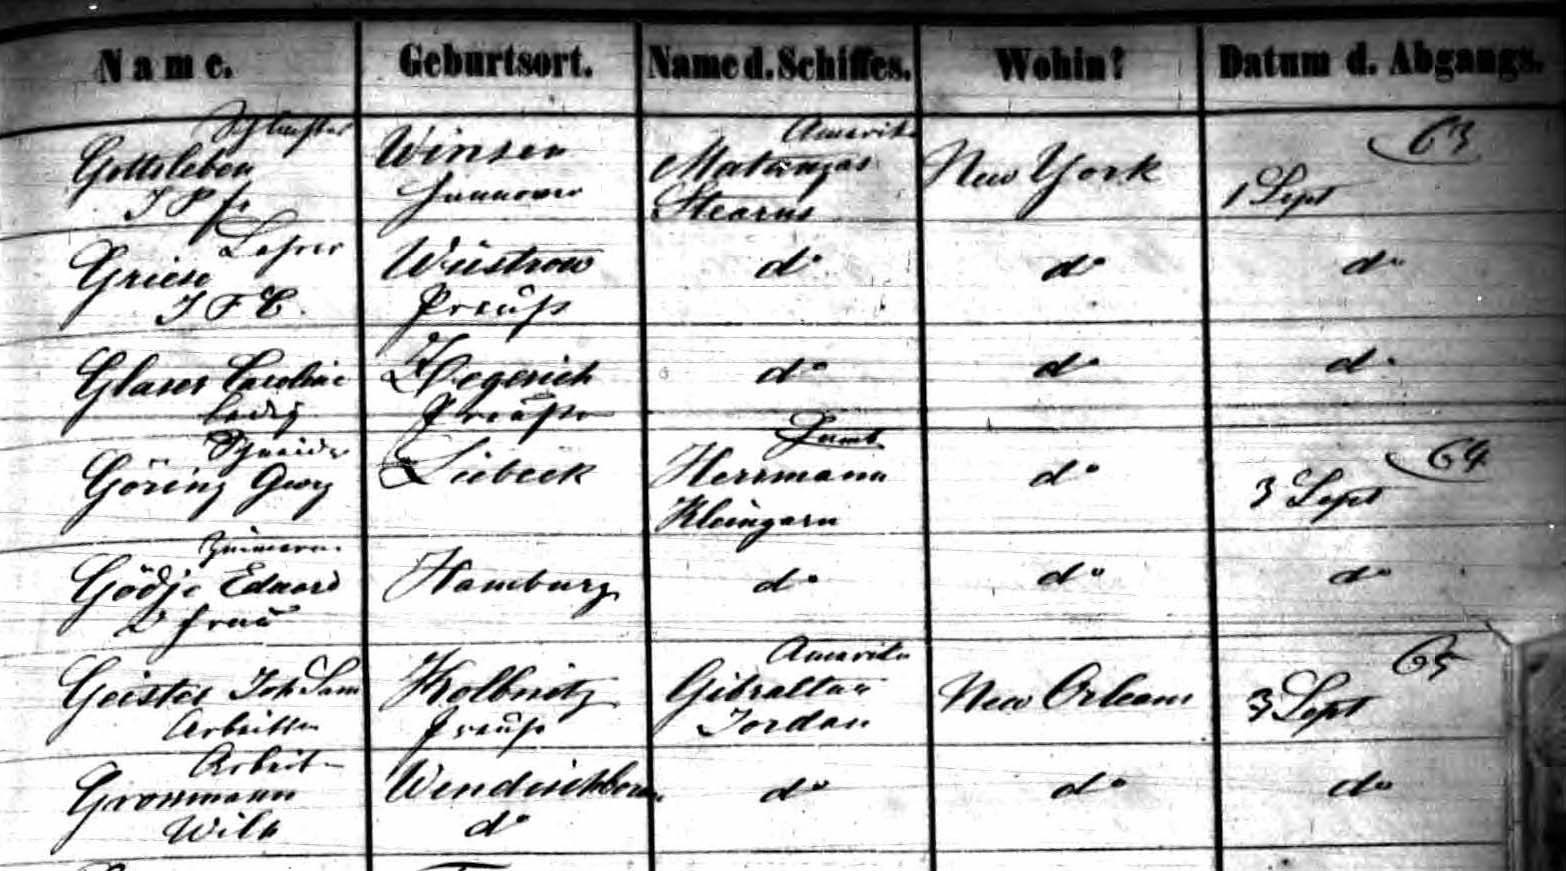 Name. Geburtsort. Name d. Schiffes. Wohin? Datum d. Abgangs.
Amerik 63
Gottsleben Winsen Matanzas New York
J P fr Hannover Stearns 1 Sept
Lehrer
Griese Wüstrow do do do
J F C. Preuß
Glaser Caroline do do do
ledig Preuße
Schneider Hamb 64
Göring Georg Lübeck Herrmann do 3 Sept
Kleingarn
Zimmerm.
Gödje Eduard Hamburg do do do
& Frau
Amerika 65
Geister Joh Sam Kolbnitz Gibraltar New Orleans 3 Sept
Arbeitsm Preuße Jordan
Arbeit
Gronmann do do do
Wilh do